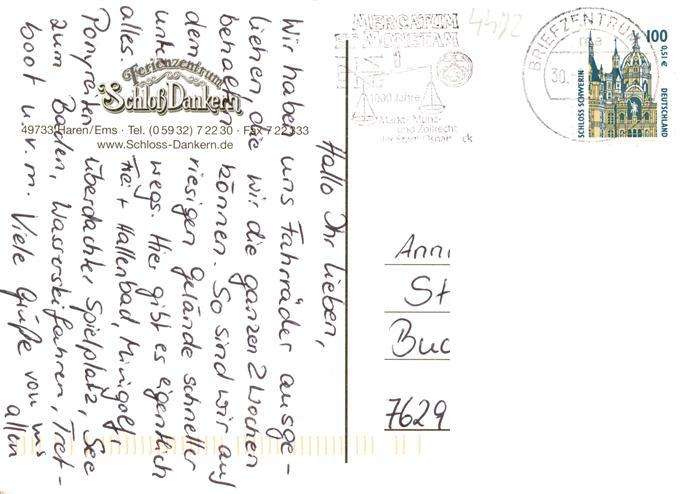 Hallo Ihr Lieben,
Wir haben uns Fahrräder ausge-
liehen die wir die ganzen 2 Wochen
behalten können. So sind wir auf
dem riesigen Gelände schneller
unterwegs. Hier gibt es eigentlich
alles. Frei + Hallenbad, Minigolf,
Ponyreiten überdachter Spielplatz, See
zum Baden, Wasserskifahren, Tret-
boot u.v.m. Viele Grüße von uns
allen
Ferienzentrum
Schloß Dankern
49733 Haren/Ems · Tel. (0 59 32) 7 22 30 · Fax 7 22 333
www.Schloss-Dankern.de
4472
MERCATUM
ET MONETAM
1000 Jahre
Markt- Münz-
und Zollrecht
BRIEFZENTRUM
30.
100
0,51 €
SCHLOSS SCHWERIN
DEUTSCHLAND
Anni
St
Buc
7629